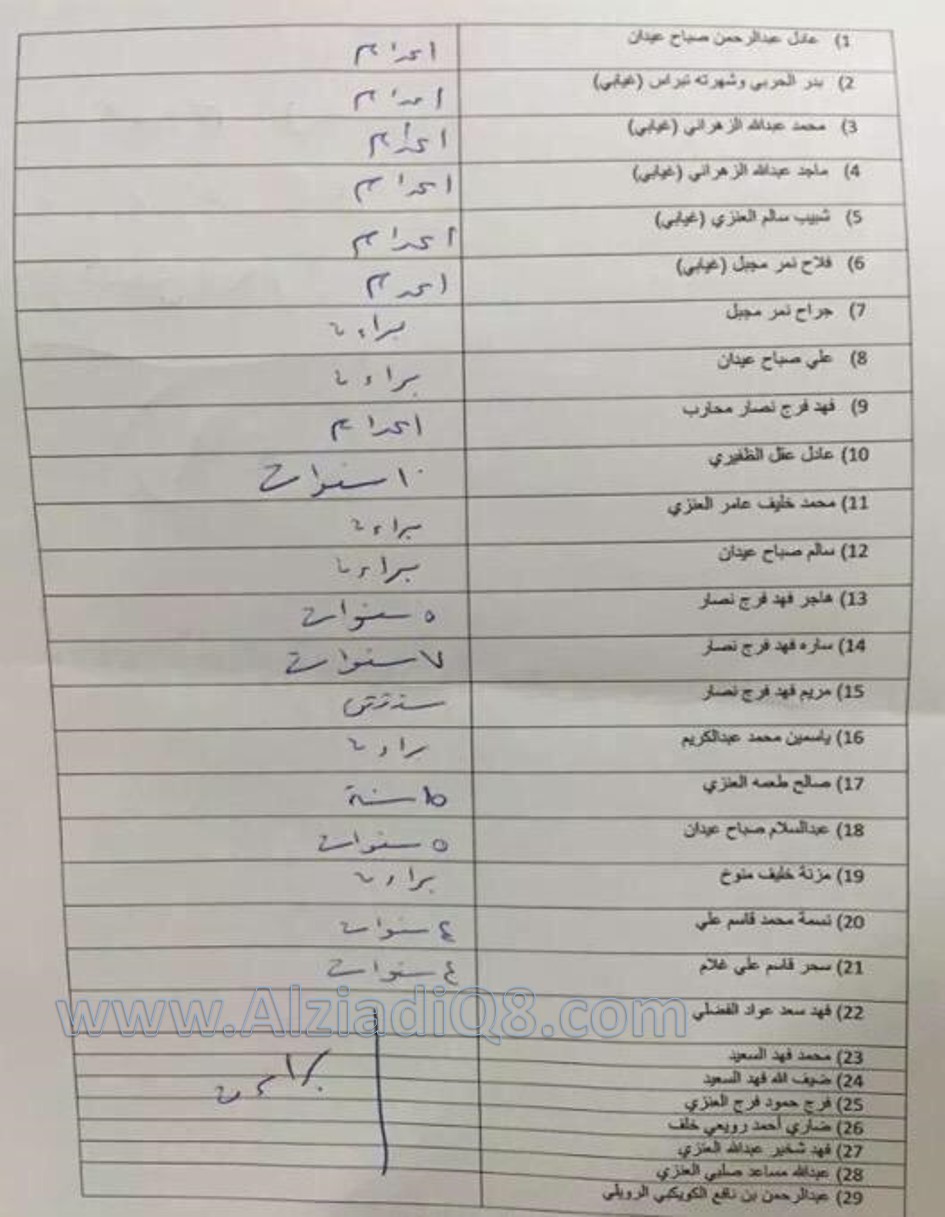 1) عادل عبدالرحمن صباح عيدان اعدام
2) بدر الحربي وشهرته نبراس (غيابي) اعدام
3) محمد عبدالله الزهراني (غيابي) اعدام
4) ماجد عبدالله الزهراني (غيابي) اعدام
5) شبيب سالم العنزي (غيابي) اعدام
6) فلاح نمر مجبل (غيابي) اعدام
7) جراح نمر مجبل براءة
8) علي صباح عيدان براءة
9) فهد فرج نصار محارب اعدام
10) عادل عقل الظفيري ١٠ سنوات
11) محمد خليف عامر العنزي براءة
12) سالم صباح عيدان براءة
13) هاجر فهد فرج نصار ٥ سنوات
14) ساره فهد فرج نصار ٧ سنوات
15) مريم فهد فرج نصار سنتين
16) ياسمين محمد عبدالكريم براءة
17) صالح طعمه العنزي ١٥ سنة
18) عبدالسلام صباح عيدان ٥ سنوات
19) مزنة خليف منوخ براءة
20) نسمة محمد قاسم علي ٤ سنوات
21) سحر قاسم علي غلام ٤ سنوات
www.AlziadiQ8.com
22) فهد سعد عواد الفضلي
23) محمد فهد السعيد
24) ضيف الله فهد السعيد براءة
25) فرج حمود فرج العنزي
26) ضاري أحمد رويعي خلف
27) فهد شخير عبدالله العنزي
28) عبدالله مساعد صلبي العنزي
29) عبدالرحمن بن نافع الكويكبي الرويلي